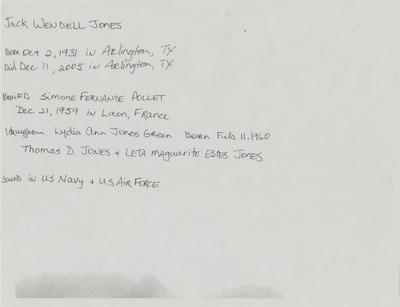 Jack WENDELL JONES
Born Oct 2, 1931 in Arlington, TX
Died Dec 11, 2005 in Arlington, TX
MARRIED Simone FERNANDE POLLET
Dec 21, 1959 in Laon, FRANCE
1 daughter Lydia Ann Jones Green Born Feb 11, 1960
Thomas D. JONES + LETA Maguarite ESTES JONES
served in US Navy + US AIR FORCE